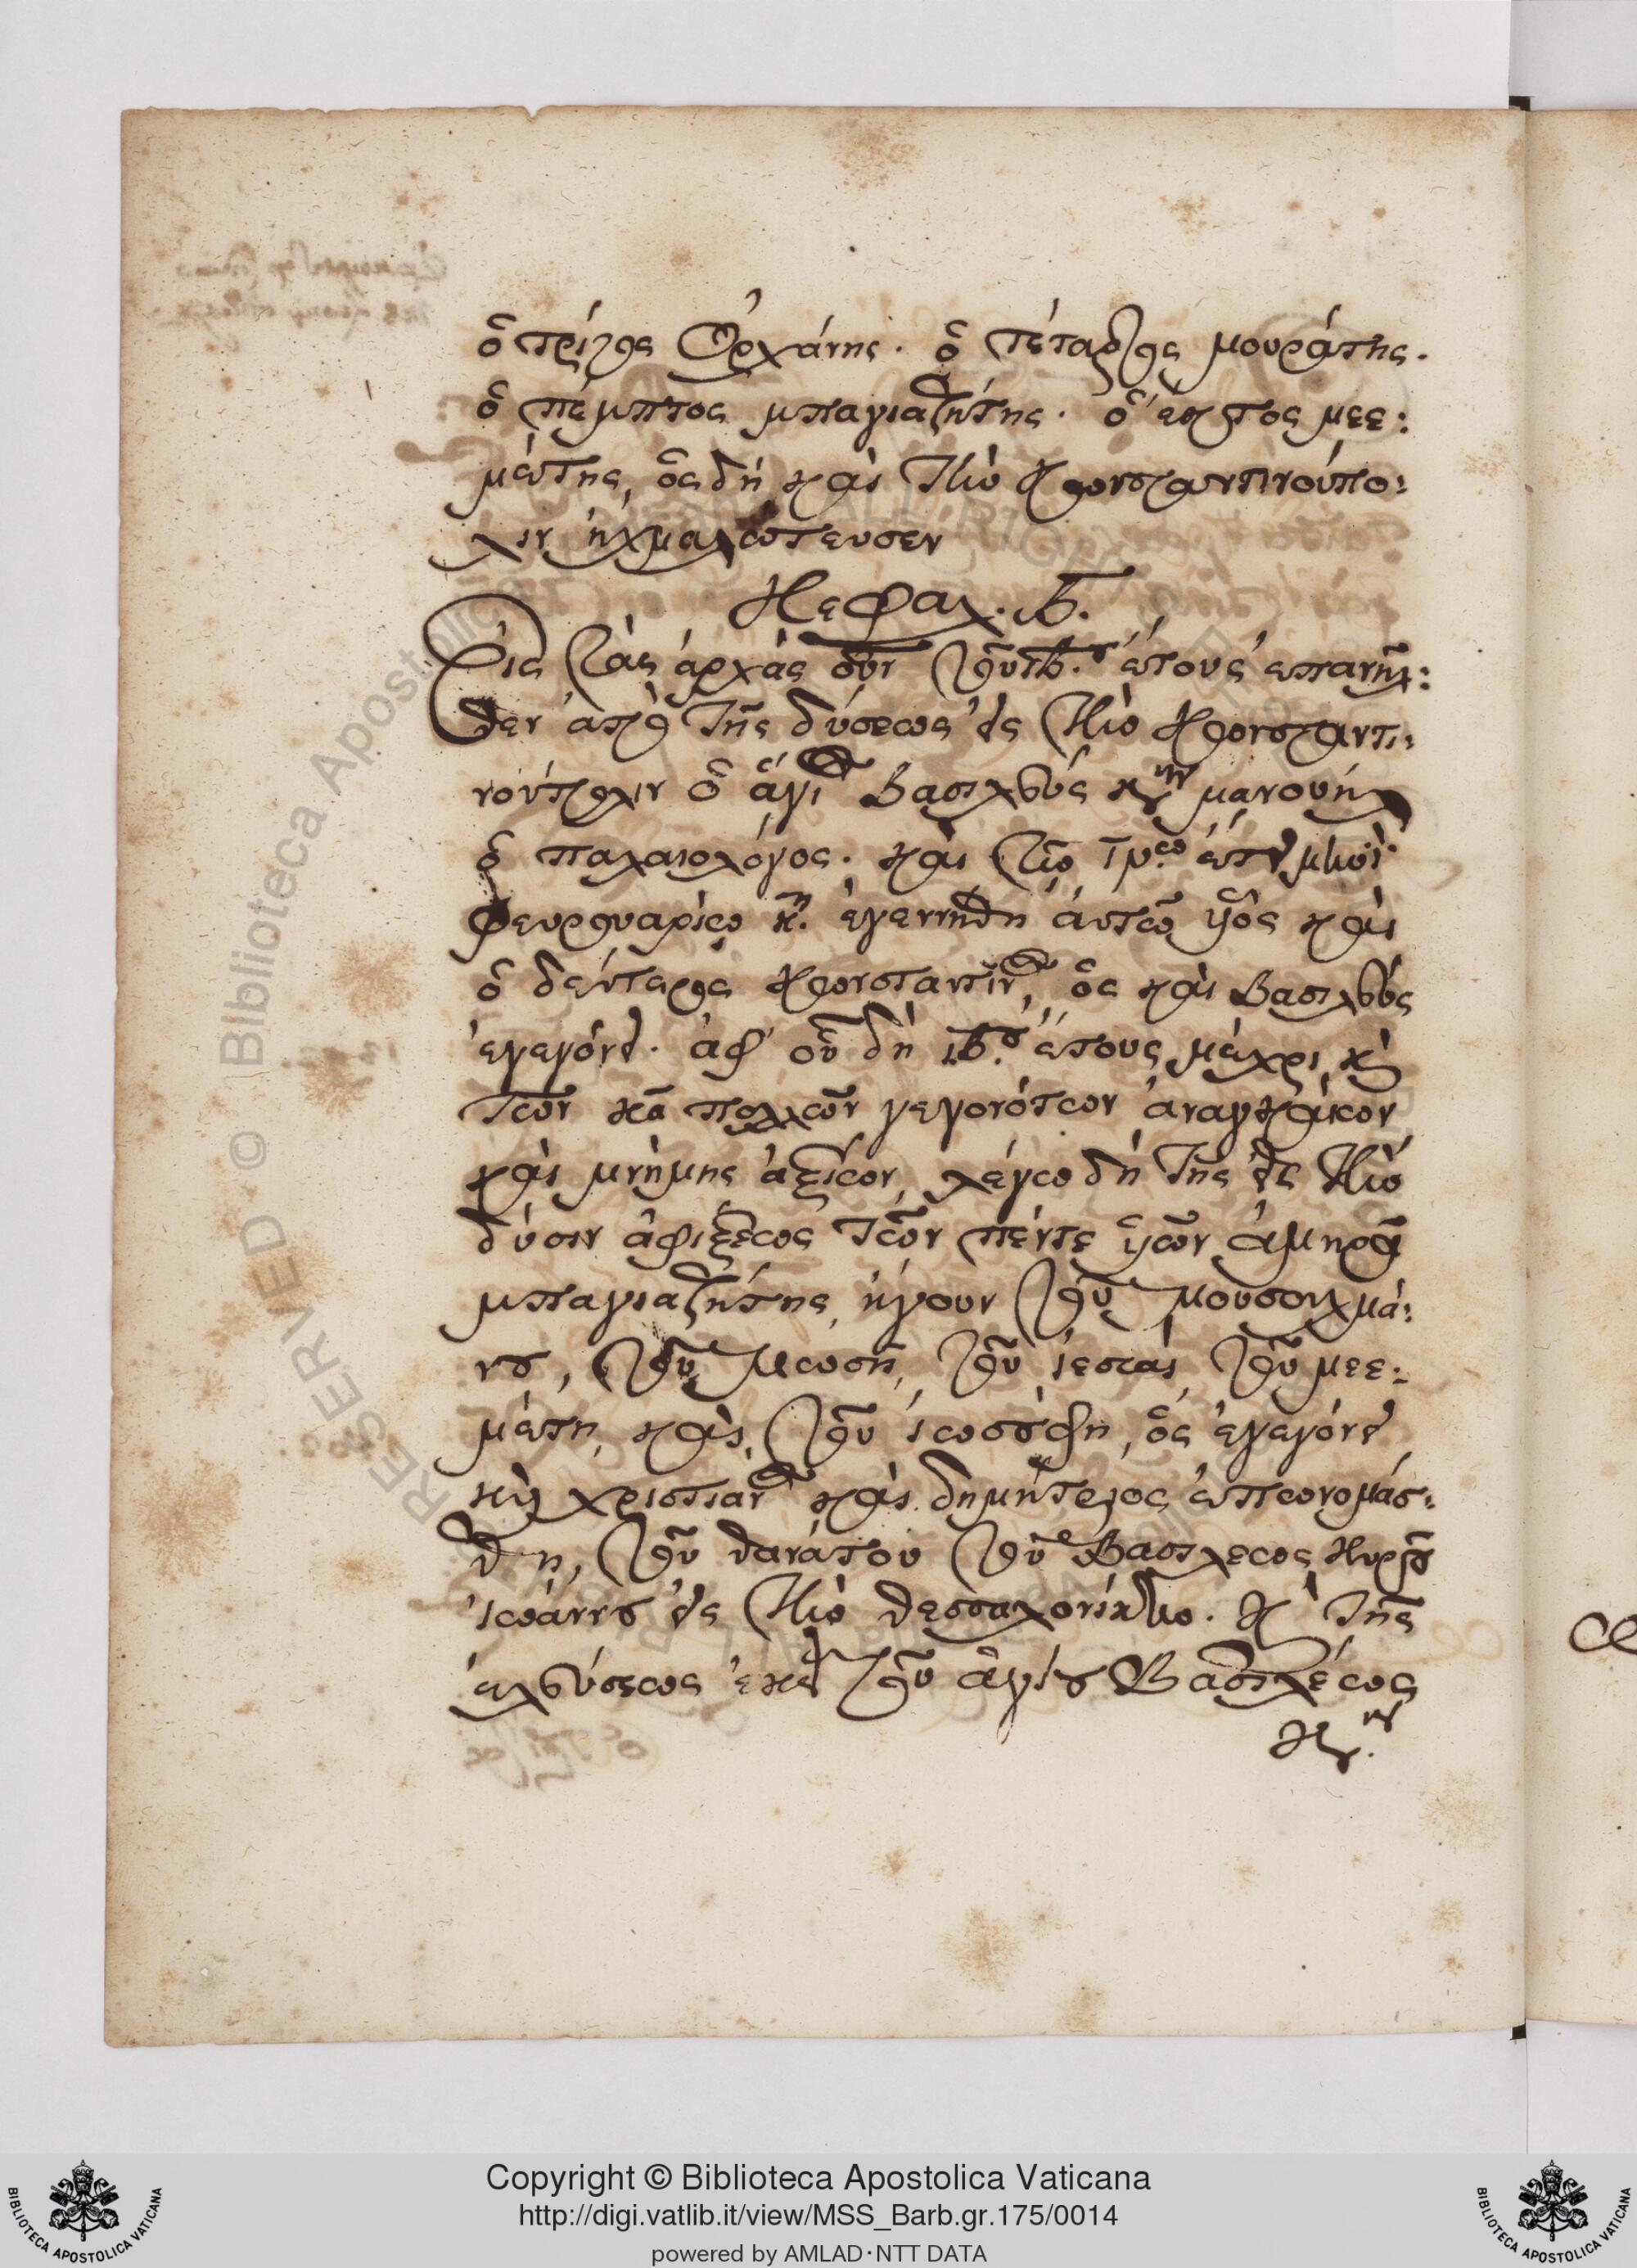 ὁ τρίτος Ὀρχάνης. ὁ τέταρτος μουράτης.
ὁ πέμπτος μπαγιαζήτης. ὁ ἕκτος μεε:
μέτης, ὃς δὴ καὶ τὴν κωνσταντινούπο:
λιν ἠχμαλώτευσεν
Κεφαλ. β.
Εἰς τὰς ἀρχὰς οὖν τοῦ ιβ.ου ἔτους ἐπανῆλ:
θεν ἀπὸ τῆς δύσεως εἰς τὴν κωνσταντι:
νούπολιν ὁ ἅγιος βασιλεὺς κυρ μανουήλ
ὁ παλαιολόγος. καὶ τῷ ιγ.ῳ ἔτει μηνὶ
φευρουαρίῳ η. ἐγεννήθη ἀυτῷ ὑιὸς καὶ
ὁ δεύτερος κωνσταντῖνος, ὃς καὶ βασιλεὺς
ἐγεγόνει. ἀφ' οὗ δὴ ιβ.ου ἔτους μέχρι καὶ
τῶν κατὰ πολλῶν γεγονότων ἀναγκαίων
καὶ μνήμης ἀξίων, λέγω δὴ τῆς εἰς τὴν
δύσιν ἀφίξεως τῶν πέντε ὑιῶν ἀμηρᾶ
μπαγιαζήτης, ἤγουν τοῦ μουσουλμά:
νου, τοῦ Μωσῆ, τοῦ ἰεσσαὶ, τοῦ μεε:
μέτη, καὶ, τοῦ ἰωσούφη, ὃς ἐγεγόνει
καὶ χριστιανὸς καὶ δημήτριος ἐπωνομάσ:
θη, τοῦ θανάτου τοῦ βασιλέως κυροῦ
ἰωάννου εἰς τὴν θεσσαλονίκην. καὶ τῆς
ἐλεύσεως ἐκεῖ τοῦ ἁγίου βασιλέως
κυρ.
Copyright © Biblioteca Apostolica Vaticana
http://digi.vatlib.it/view/MSS_Barb.gr.175/0014
powered by AMLAD·NTT DATA